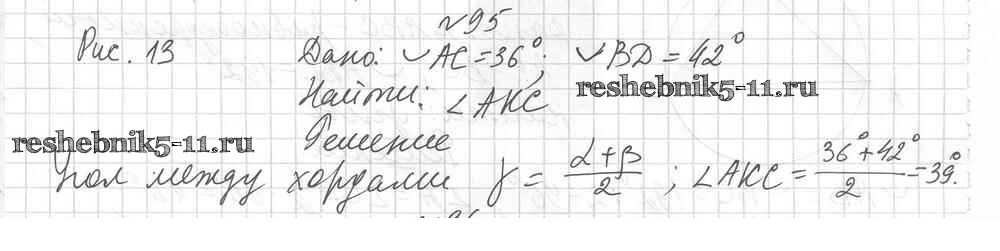 №95
Рис. 13 Дано: ◡ AC = 36°; ◡ BD = 42°
Найти: ∠AKC reshebnik5-11.ru
reshebnik5-11.ru Решение
Угол между хордами γ = (α + β)/2 ; ∠AKC = (36° + 42°)/2 = 39°.